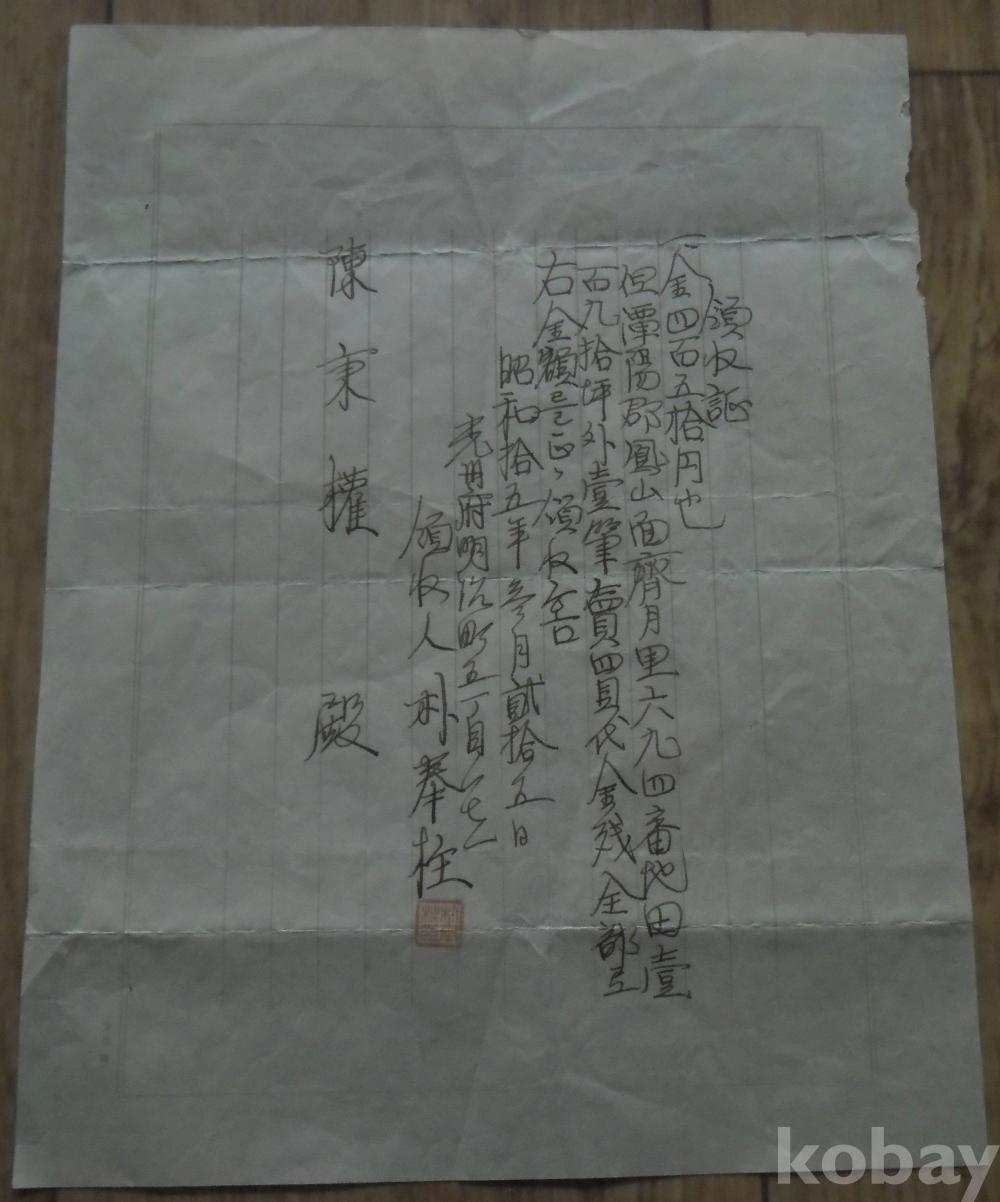 領收証
一金四百五拾円也
但潭陽郡鳳山面齊月里六九四番地田壹
百九拾坪外壹筆賣買代金残全部
右金額正、領收
昭和拾五年參月貳拾五日
光州府明治町五丁目
領收人 朴奉柱
陳秉權 殿
kobay